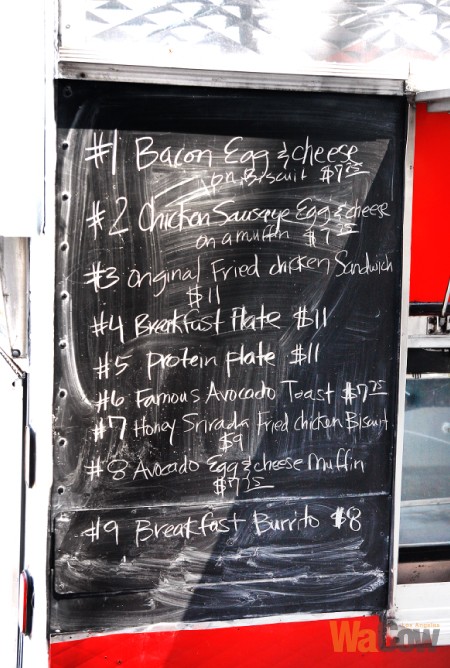 #1 Bacon Egg & cheese
on Biscuit $7.25
#2 Chicken Sausage Egg & cheese
on a muffin $7.25
#3 original Fried chicken Sandwich
$11
#4 Breakfast Plate $11
#5 Protein plate $11
#6 Famous Avocado Toast $7.25
#7 Honey Srirada Fried chicken Biscuit
$9
#8 Avocado Egg & cheese Muffin
$7.25
#9 Breakfast Burrito $8
Los Angeles
WaCow